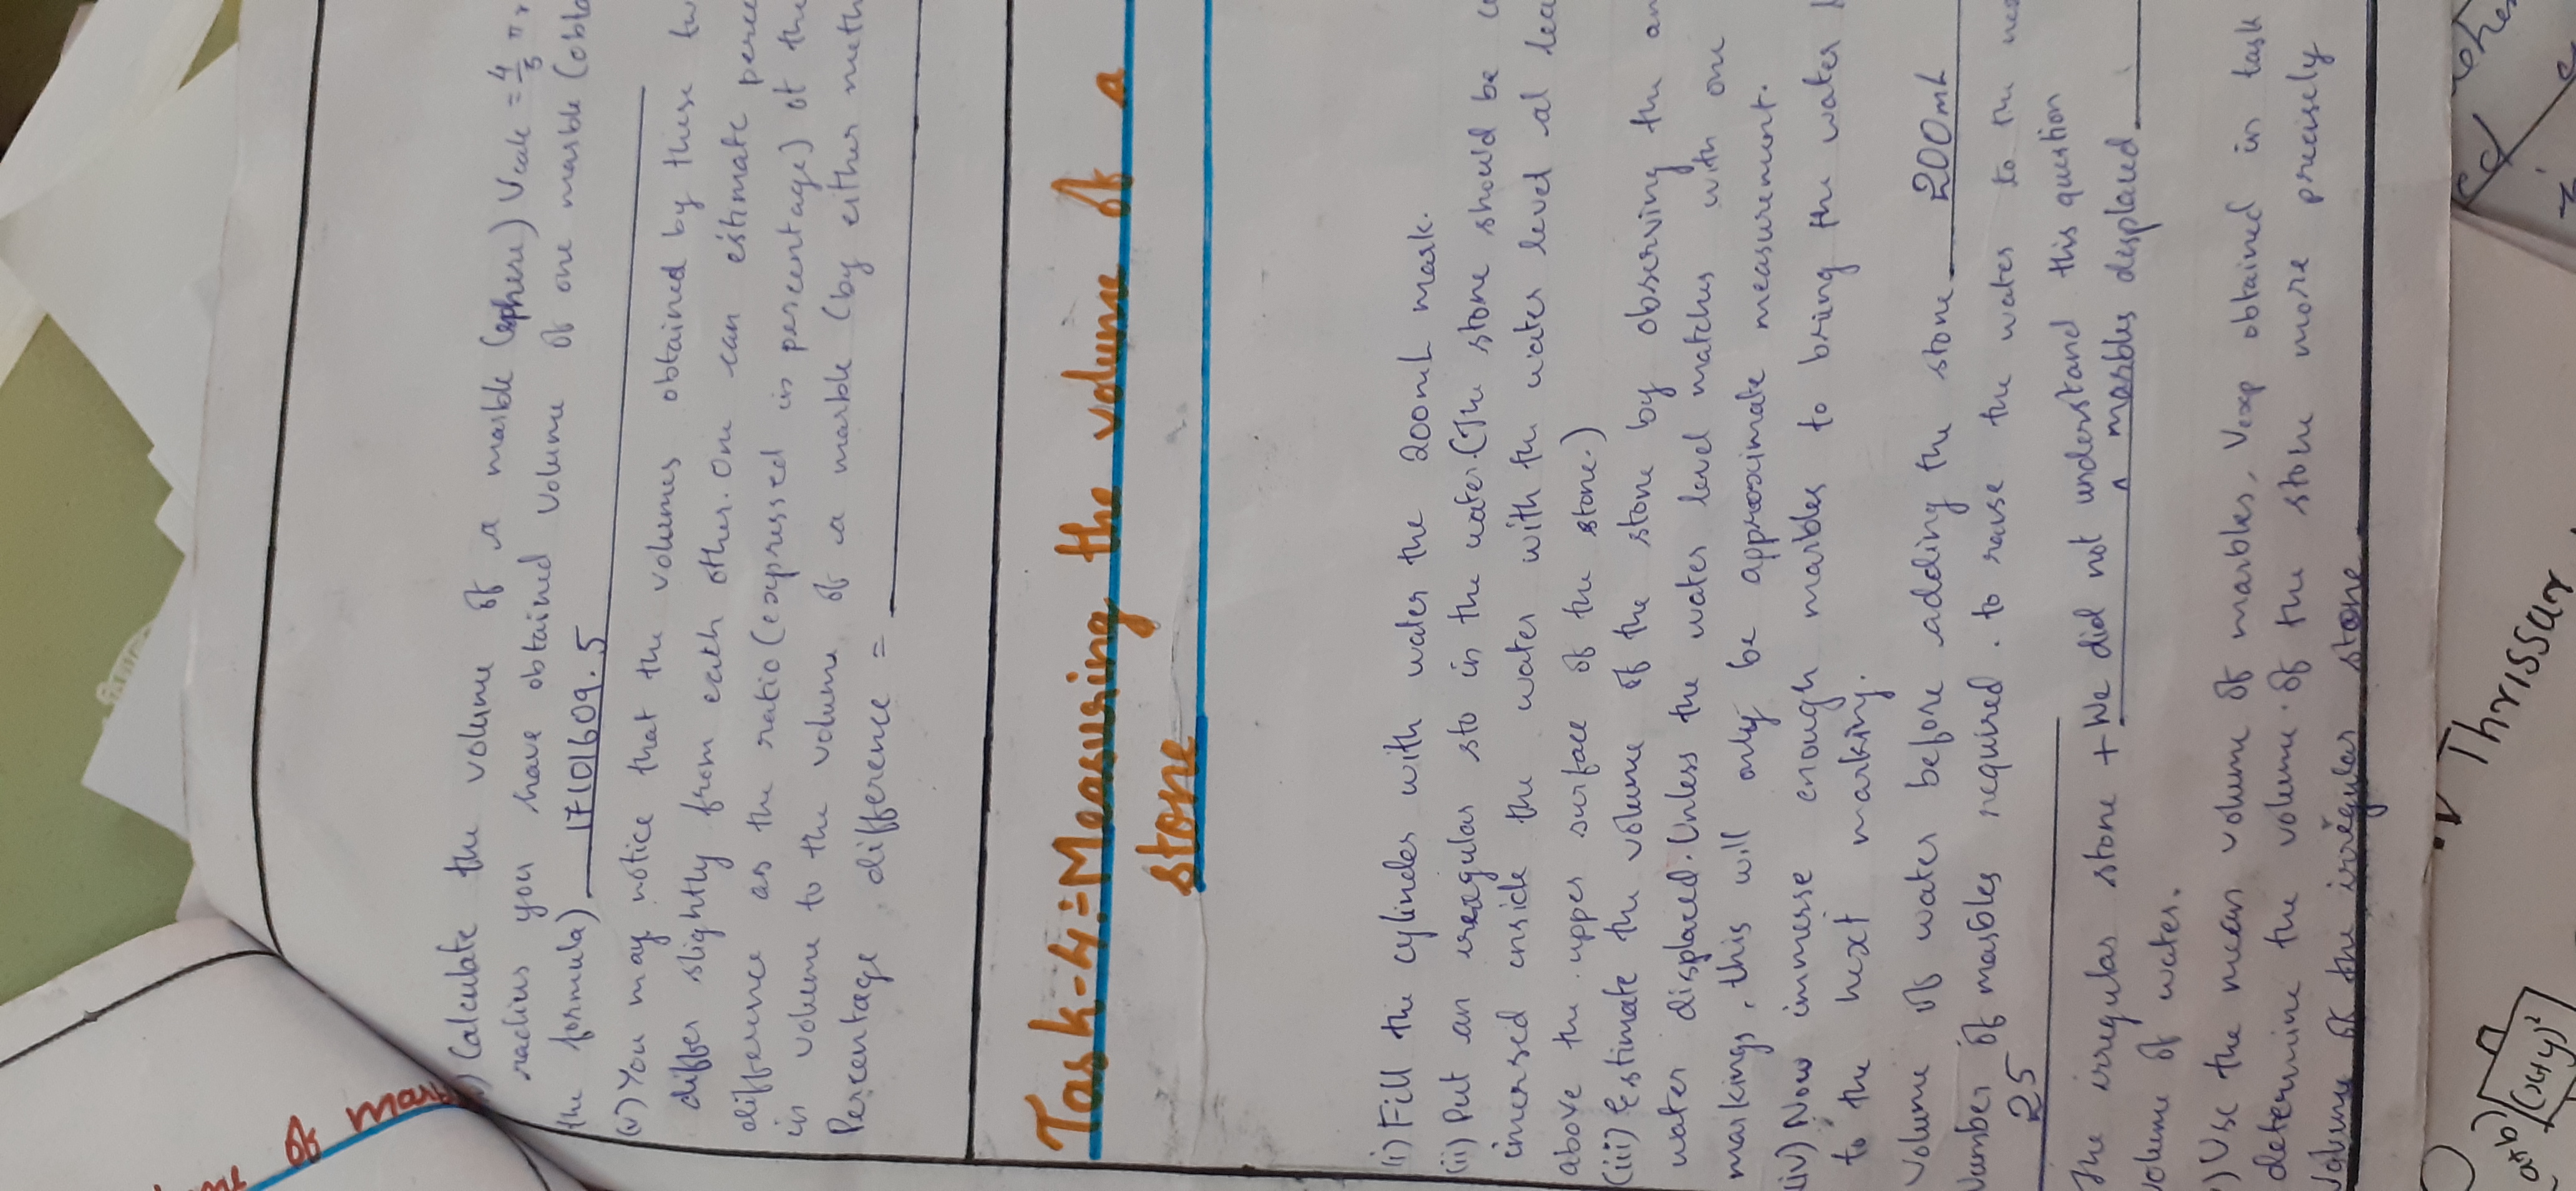 of marb
) Calculate the volume of a marble (sphere) Vcalc = 4/3 π
radius you have obtained volume of one marble (obta
the formula) 17101609.5
(v) You may notice that the volumes obtained by these tw
differ slightly from each other. One can estimate perce
difference as the ratio (expressed in percentage) of the
in volume to the volume of a marble (by either meth
Percentage difference =
Task-4:- Measuring the volume of a
stone
(i) Fill the cylinder with water the 200mL mark.
(ii) Put an irregular sto in the water. (The stone should be c
immersed inside the water with the water level at lea
above the upper surface of the stone.)
(iii) Estimate the volume of the stone by observing the am
water displaced. Unless the water level matches with one
markings, this will only be approximate measurement.
(iv) Now immerse enough marbles to bring the water l
to the next marking.
Volume of water before adding the stone 200mL
Number of marbles required. to raise the water to the nex
25
The irregular stone + We did not understand this question
^ marbles desplaced
volume of water.
) Use the mean volume of marbles, Vexp obtained in task
determine the volume. of the stone more precisely
Volume of the irregular stone
Thrissur
(a+b)
(x+y)²